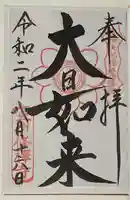 奉拝
大日如来
令和二年八月十六日